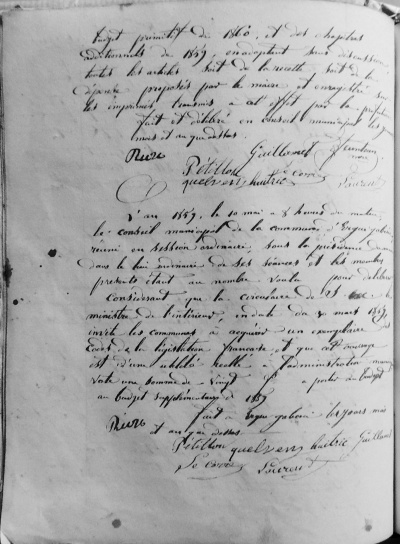 budget primitif de 1860, et des chapitres
additionnels de 1859, en adoptant sans discussion
toutes les articles soit de la recette soit de la
dépense proposés par le maire et enregistré sur
les imprimés transmis à cet effet par la préfecture
fait et délibéré en conseil municipal les jour
mois et an que dessus.
Guillamet
Pétillon
quelven huitric Le corre
L'an 1859, le 10 mai à 8 heures du matin
le conseil municipal de la commune d'Ergué gabéric
réuni en session ordinaire, sous la présidence du maire
dans le lieu ordinaire de ses séances et les membres
présents étant au nombre voulu pour délibérer
Considérant que la circulaire de le
ministre de l'intérieur, en date du 8 mars 1859,
invite les communes à acquérir un exemplaire du
Code de la législation française et que cet ouvrage
est d'une utilité réelle à l'administration
vote une somme de vingt à porter au budget
au budget supplémentaire de 1859
fait à Ergué gabéric les jours mois
et an que dessus
Pétillon quelven huitric Guillamet
Le corre